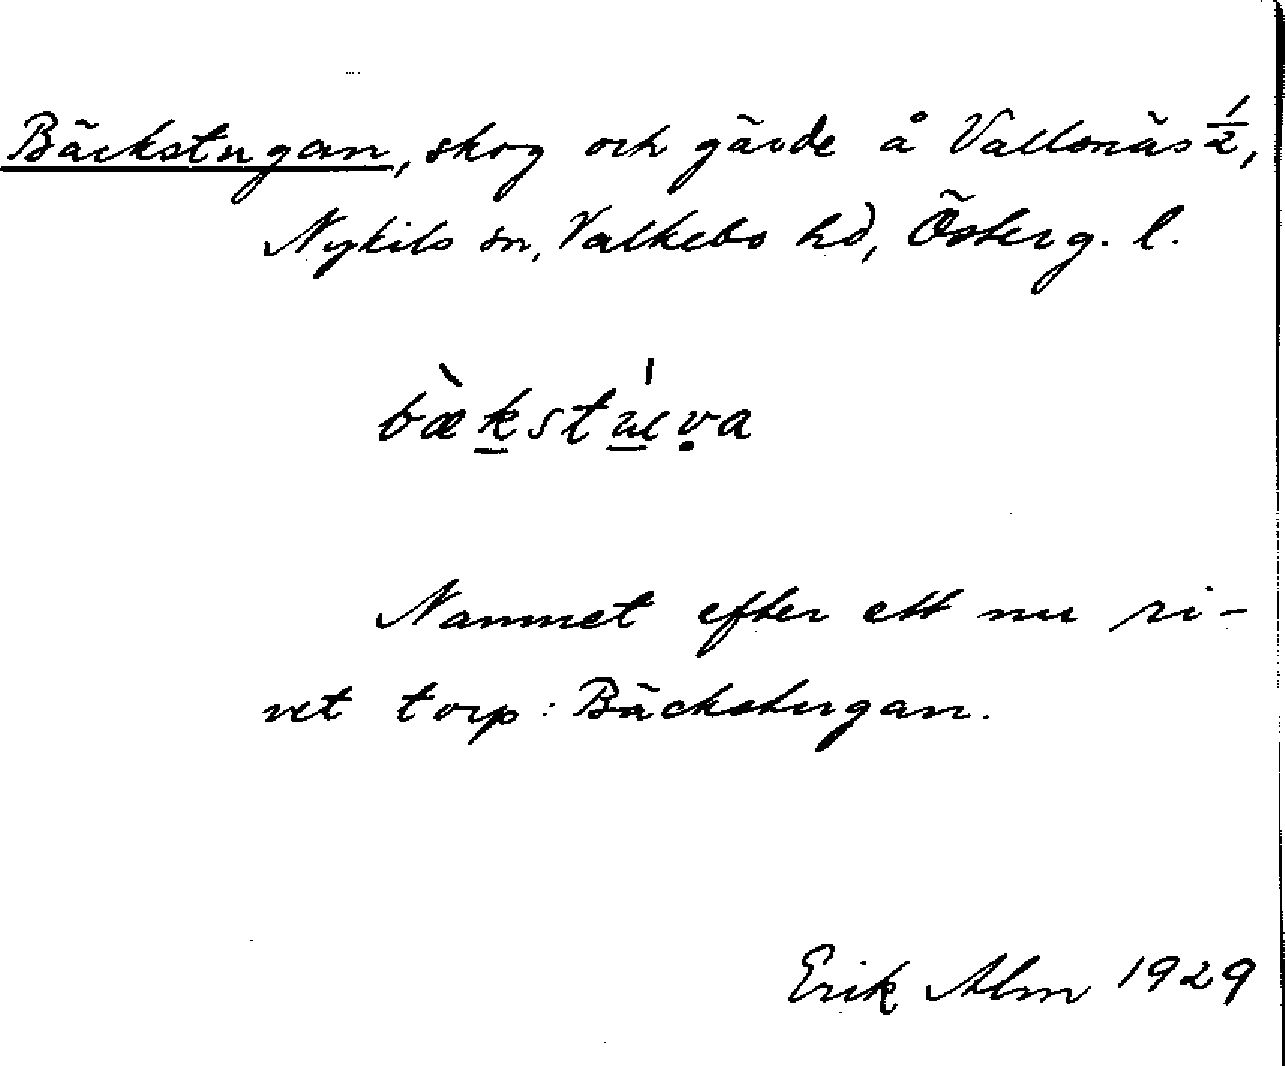 Bäckstugan, skog och gärde å Vallsnäs 1/2,
Nykils sn, Valkebo hd, Österg. l.
bæ̀kstɯ́va
Namnet efter ett nu ri-
vet torp: Bäckstugan.
Erik Alm 1929